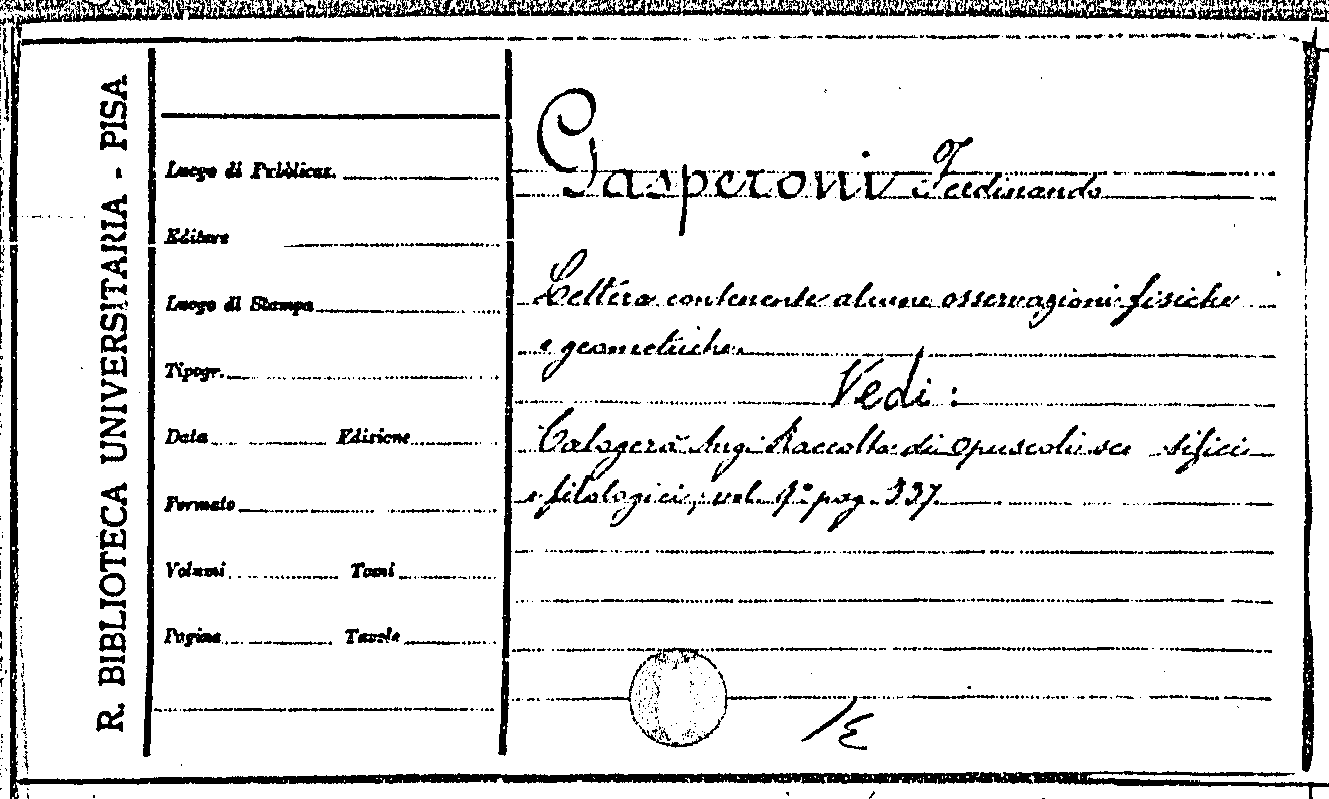 R. BIBLIOTECA UNIVERSITARIA - PISA
Luogo di Pubblicaz.
Editore
Luogo di Stampa
Tipogr.
Data Edizione
Formato
Volumi Tomi
Pagine Tavole
Gasperoni Ferdinando
Lettera contenente alcune osservazioni fisiche
e geometriche.
Vedi :
Calogerà Ang. Raccolta di opuscoli sci tifici
e filologici, vol. 9° pag. 337